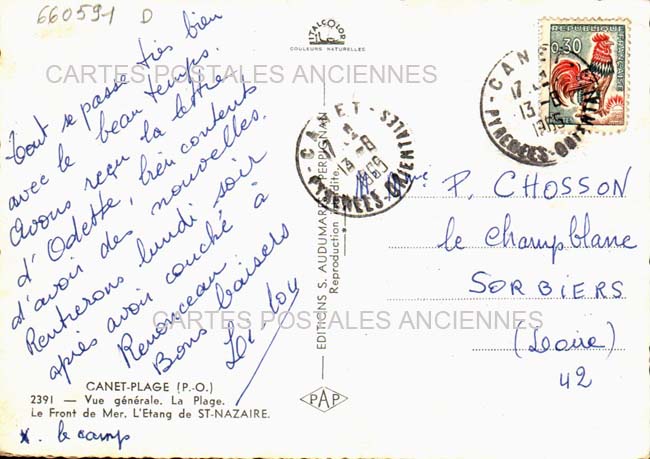 660591 D
ITALCOLOR
COULEURS NATURELLES
CARTES POSTALES ANCIENNES
Tout se passe très bien
avec le beau temps.
Avons reçu la lettre
d'Odette, bien contents
d'avoir des nouvelles.
Rentrerons lundi soir
après avoir couché à
Bons baisers
CARTES POSTALES ANCIENNES
CANET-PLAGE (P.-O.)
2391 — Vue générale. La Plage.
Le Front de Mer. L'Etang de ST-NAZAIRE.
x. le camp
EDITIONS S. AUDUMARES PERPIGNAN
Reproduction interdite
PAP
CANET
13-8
1965
PYRENEES-ORIENTALES
REPUBLIQUE FRANÇAISE
0,30
CANET
17
13-8
1965
PYRENEES-ORIENTALES
Mme P. CHOSSON
le Champblanc
SORBIERS
(Loire)
42